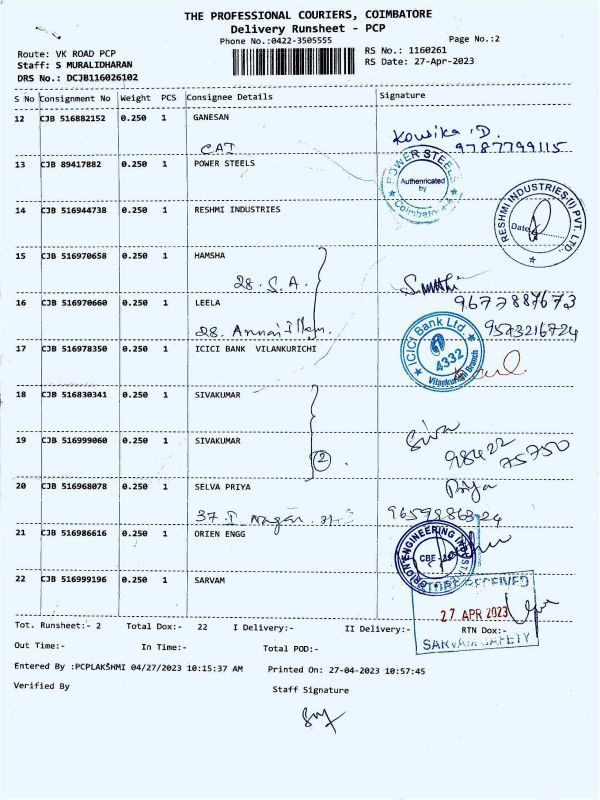 THE PROFESSIONAL COURIERS, COIMBATORE
Delivery Runsheet - PCP
Phone No.:0422-3505555
Page No.:2
Route: VK ROAD PCP
RS No.: 1160261
Staff: S MURALIDHARAN
RS Date: 27-Apr-2023
DRS No.: DCJB116026102
S No Consignment No Weight PCS Consignee Details Signature
12 CJB 516882152 0.250 1 GANESAN
CAT
Kowsika .D.
9787799115
13 CJB 89417882 0.250 1 POWER STEELS
POWER STEELS
Authenricated
by
Coimbatore
14 CJB 516944738 0.250 1 RESHMI INDUSTRIES
RESHMI INDUSTRIES (I) PVT. LTD.
Date
15 CJB 516970658 0.250 1 HAMSHA
28. S.A.
9677887673
16 CJB 516970660 0.250 1 LEELA
28.
9573216724
17 CJB 516978350 0.250 1 ICICI BANK VILANKURICHI
ICICI Bank Ltd
4332
Vilankurichi Branch
18 CJB 516830341 0.250 1 SIVAKUMAR
19 CJB 516999060 0.250 1 SIVAKUMAR
2
Siva
98422
75750
20 CJB 516968078 0.250 1 SELVA PRIYA
Priya
37. Nagar
21 CJB 516986616 0.250 1 ORIEN ENGG
ORION ENGINEERING
CBE -
22 CJB 516999196 0.250 1 SARVAM
RECEIVED
27 APR 2023
SARVAM SAFETY
Tot. Runsheet:- 2 Total Dox:- 22 I Delivery:- II Delivery:- RTN Dox:-
Out Time:- In Time:- Total POD:-
Entered By :PCPLAKSHMI 04/27/2023 10:15:37 AM Printed On: 27-04-2023 10:57:45
Verified By
Staff Signature